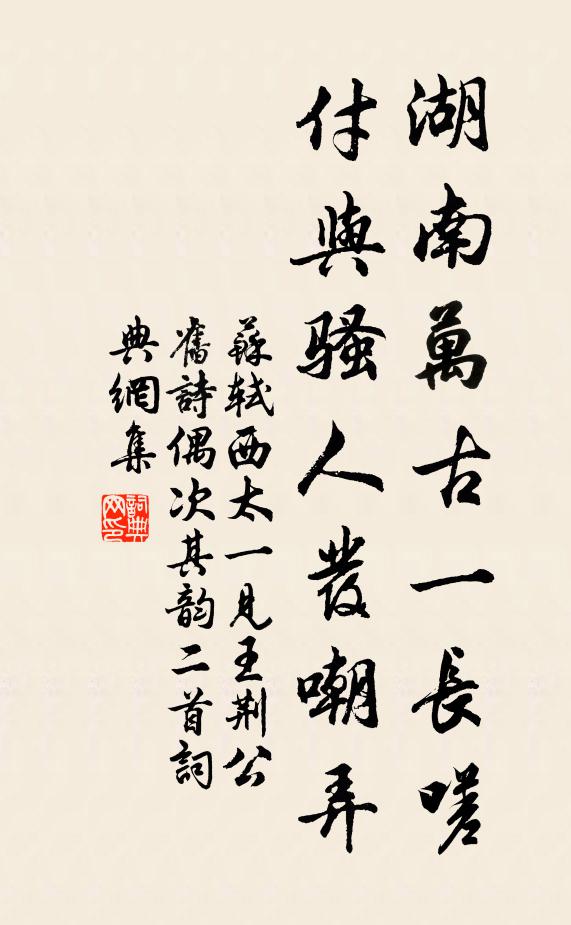 湖南萬古一長嗟
付與騷人發嘲弄
蘇軾西太一見王荊公
舊詩偶次其韵二首詞
典網集
詞典網印